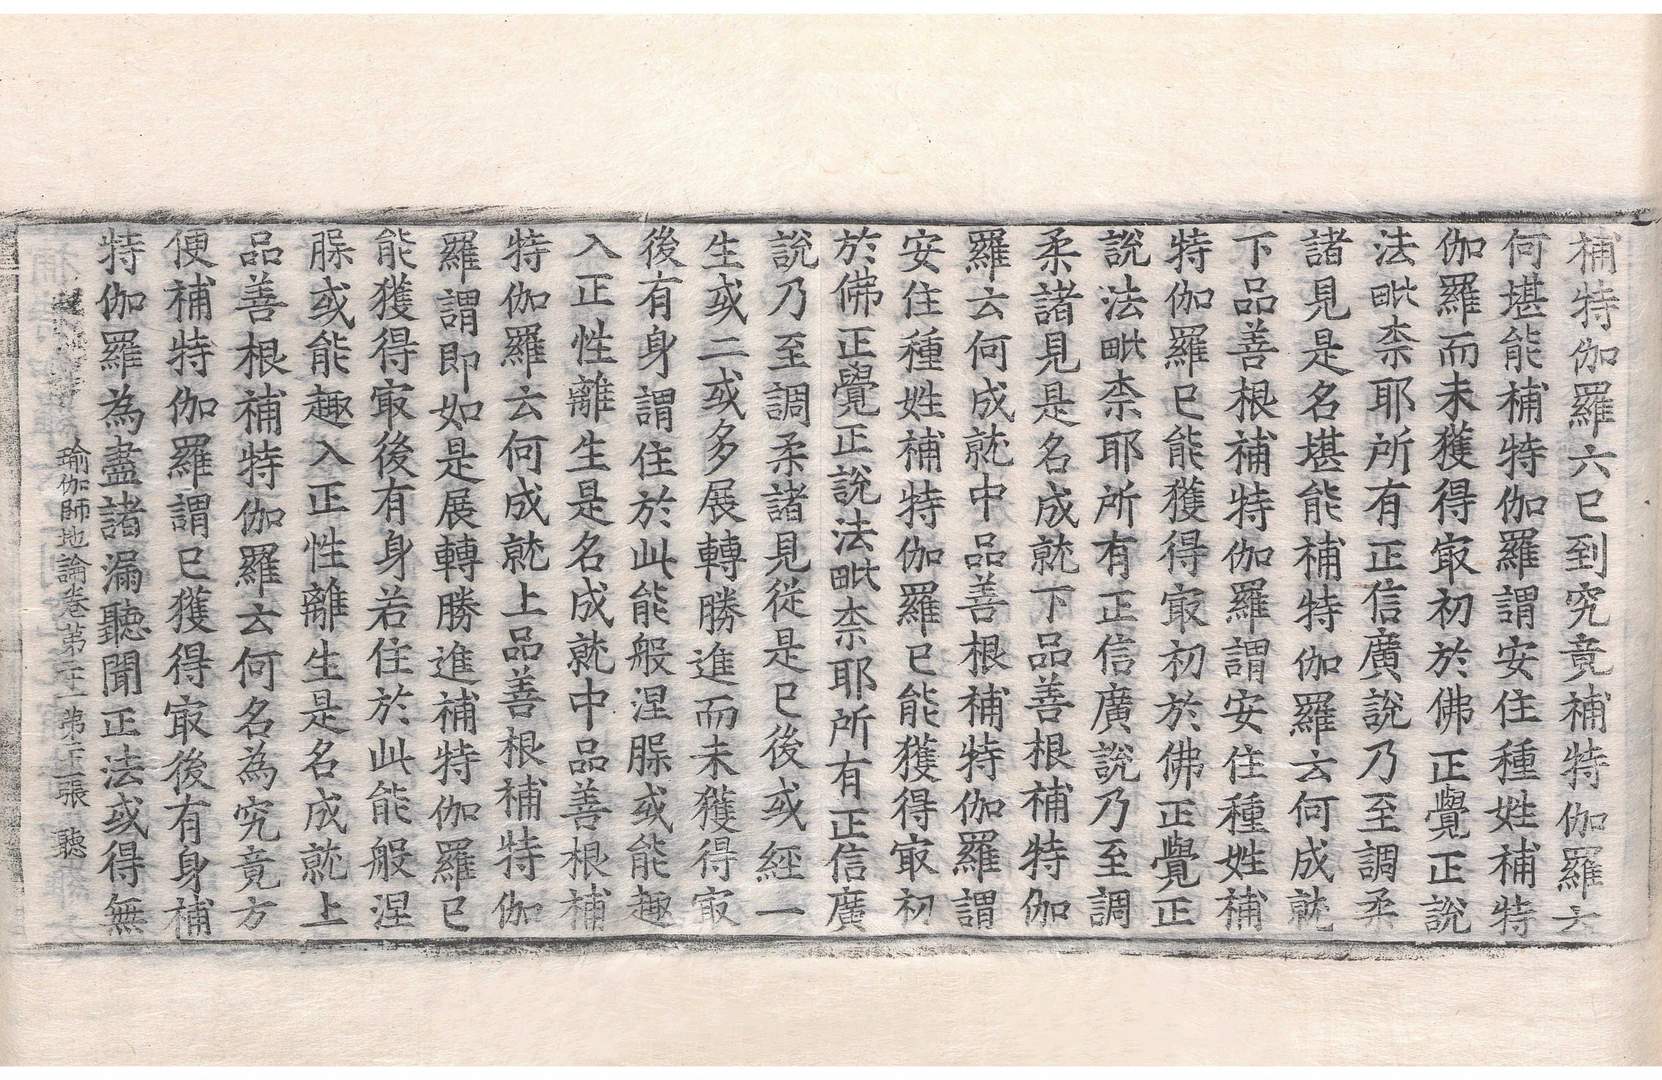 補特伽羅六已到究竟補特伽羅云
何堪能補特伽羅謂安住種姓補特
伽羅而未獲得㝡初於佛正覺正說
法毗柰耶所有正信廣說乃至調柔
諸見是名堪能補特伽羅云何成就
下品善根補特伽羅謂安住種姓補
特伽羅已能獲得㝡初於佛正覺正
說法毗柰耶所有正信廣說乃至調
柔諸見是名成就下品善根補特伽
羅云何成就中品善根補特伽羅謂
安住種姓補特伽羅已能獲得㝡初
於佛正覺正說法毗柰耶所有正信廣
說乃至調柔諸見從是已後或經一
生或二或多展轉勝進而未獲得㝡
後有身謂住於此能般涅槃或能趣
入正性離生是名成就中品善根補
特伽羅云何成就上品善根補特伽
羅謂即如是展轉勝進補特伽羅已
能獲得㝡後有身若住於此能般涅
槃或能趣入正性離生是名成就上
品善根補特伽羅云何名為究竟方
便補特伽羅謂已獲得㝡後有身補
特伽羅為盡諸漏聽聞正法或得無
瑜伽師地論卷第二十一 第二十二張 聽